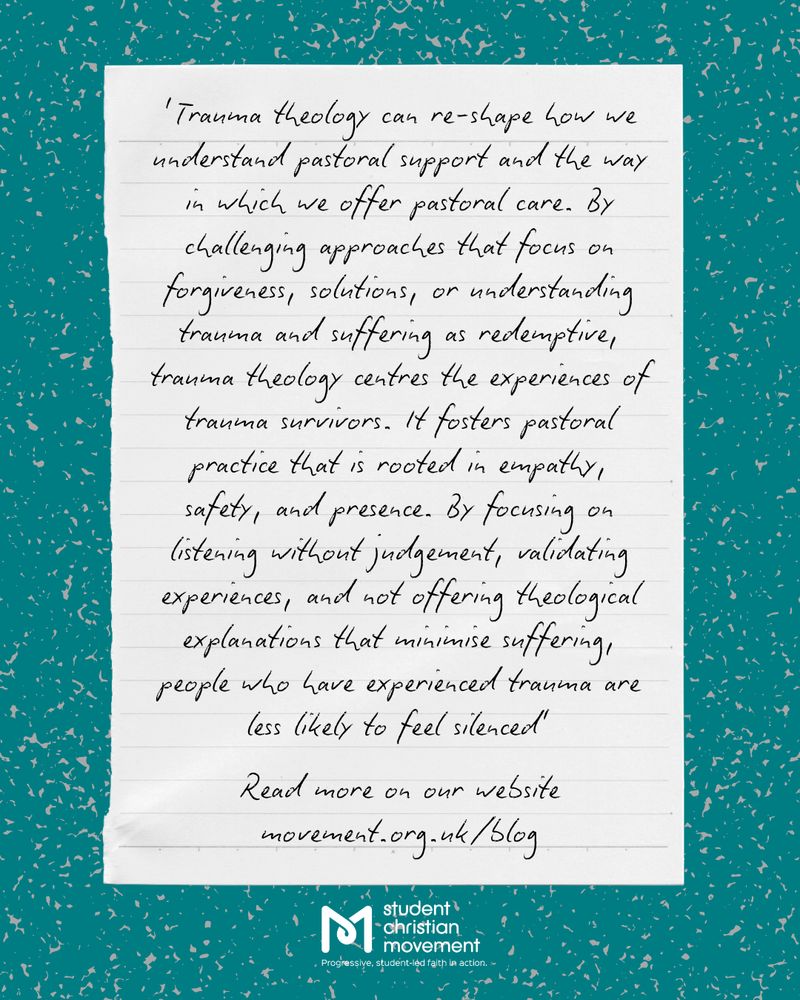 'Trauma theology can re-shape how we
understand pastoral support and the way
in which we offer pastoral care. By
challenging approaches that focus on
forgiveness, solutions, or understanding
trauma and suffering as redemptive,
trauma theology centres the experiences of
trauma survivors. It fosters pastoral
practice that is rooted in empathy,
safety, and presence. By focusing on
listening without judgement, validating
experiences, and not offering theological
explanations that minimise suffering,
people who have experienced trauma are
less likely to feel silenced'
Read more on our website
movement.org.uk/blog
student
christian
movement
Progressive, student-led faith in action.